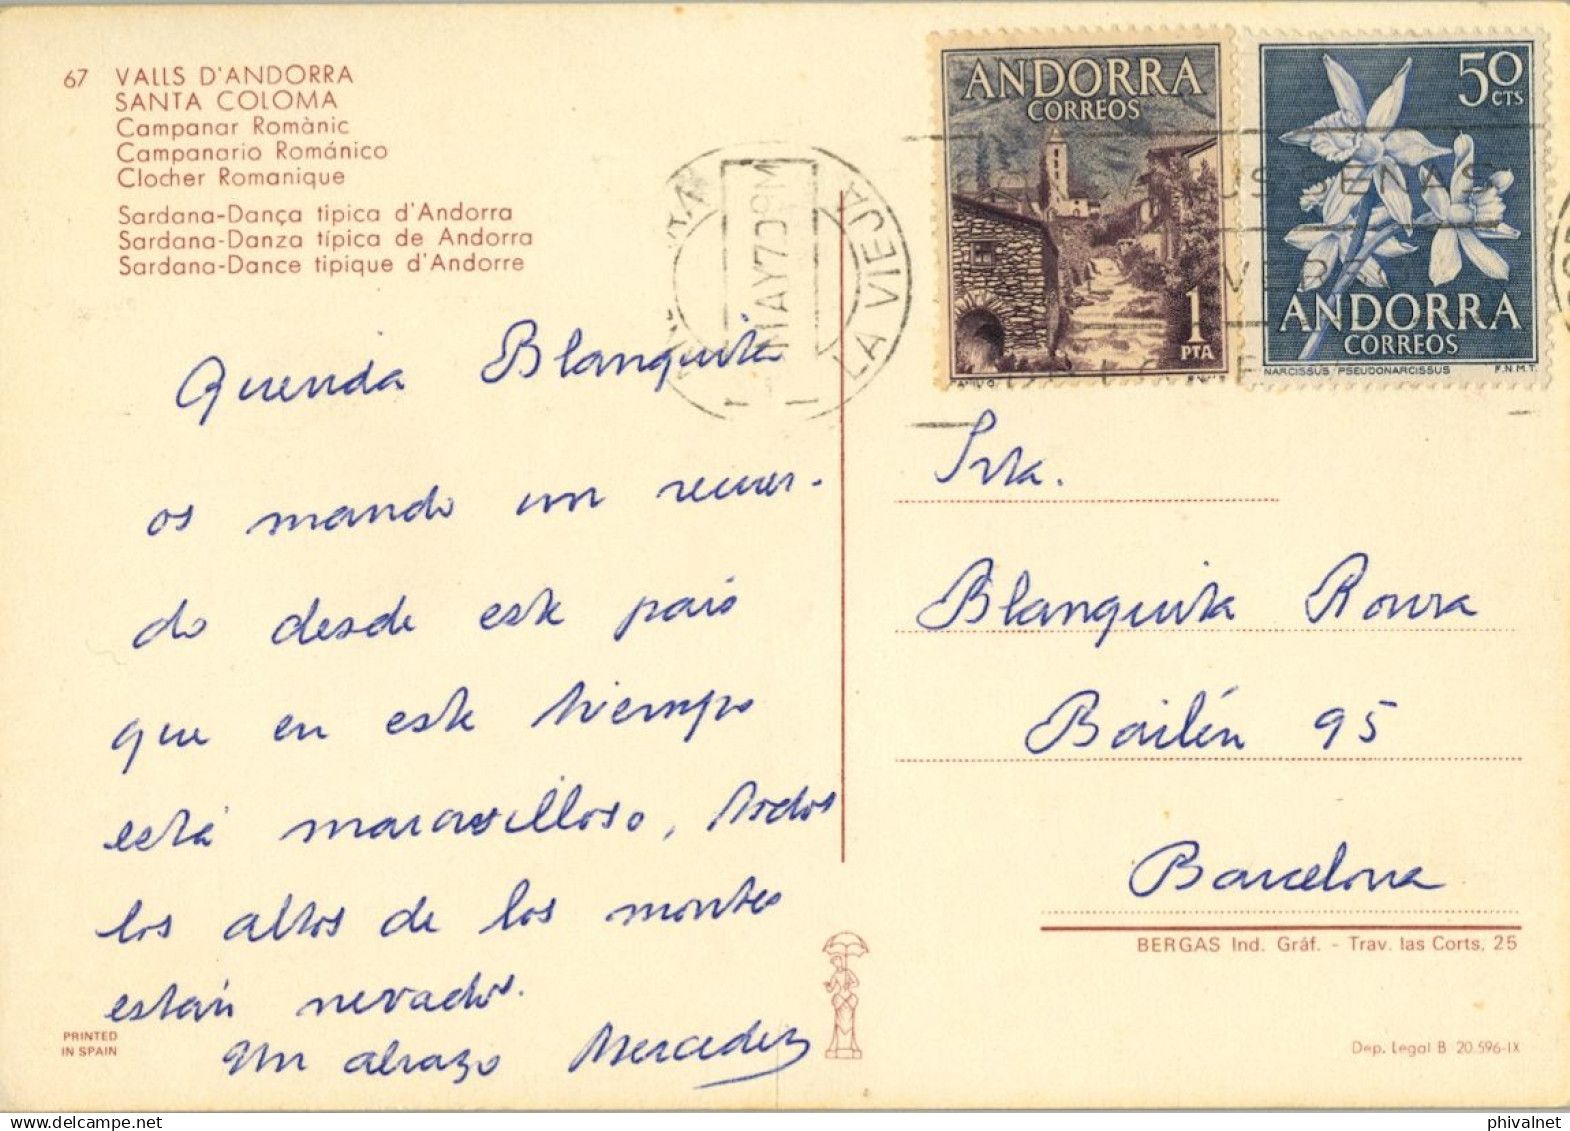 67 VALLS D'ANDORRA
SANTA COLOMA
Campanar Romànic
Campanario Románico
Clocher Romanique
Sardana-Dança tipica d'Andorra
Sardana-Danza típica de Andorra
Sardana-Dance tipique d'Andorre
ANDORRA
CORREOS
1
PTA
50
CTS
ANDORRA
CORREOS
NARCISSUS PSEUDONARCISSUS F.N.M.T.
LA VIEJA
MAY 70
SENAS
Querida Blanquita
os mando un recuer-
do desde este pais
que en este tiempo
está maravilloso, todos
los altos de los montes
están nevados.
Un abrazo Mercedes
Srta.
Blanquita Roura
Bailén 95
Barcelona
BERGAS Ind. Gráf. - Trav. las Corts, 25
PRINTED
IN SPAIN
Dep. Legal B 20.596-IX
phivalnet